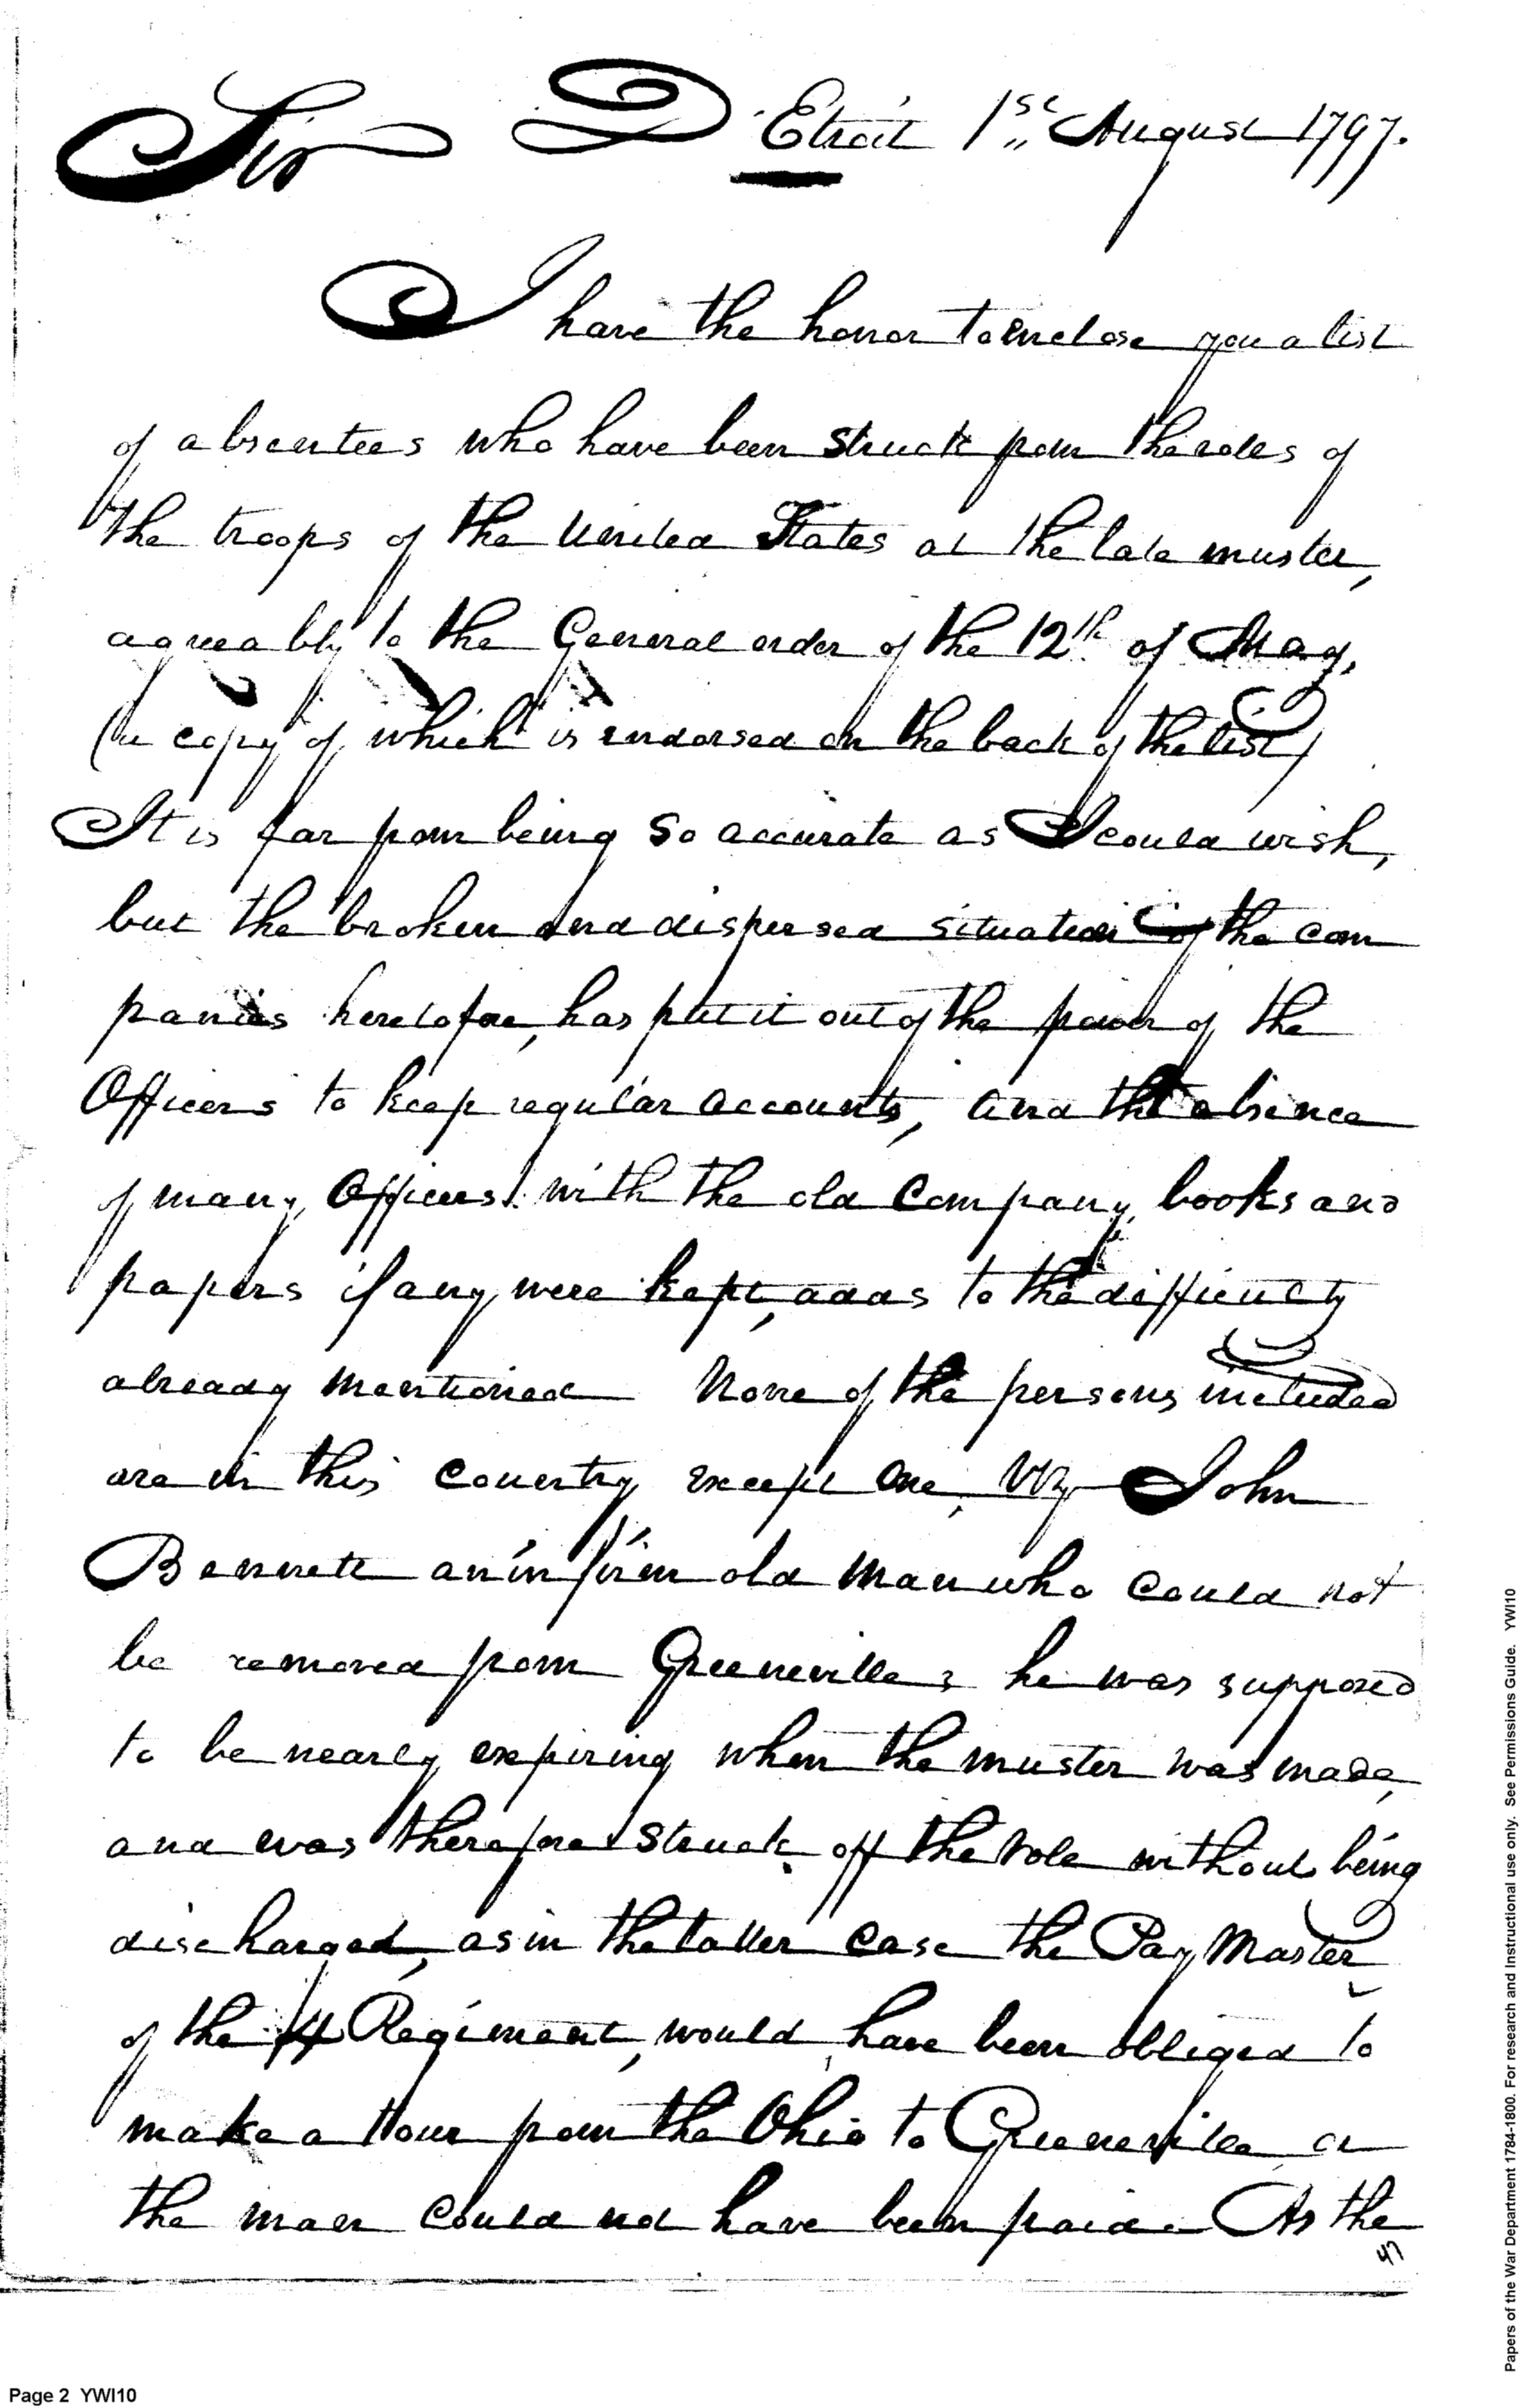 Sir DEtroit 1st August 1797.
I have the honor to enclose you a list
of absentees who have been struck from the roles of
the troops of the United States at the late muster,
agreeably to the General order of the 12th of May,
(a copy of which is endorsed on the back of the list)
It is far from being so accurate as I could wish,
but the broken and dispersed situation of the com
panies heretofore, has put it out of the power of the
Officers to keep regular accounts, and the absence
of many Officers with the old Company books and
papers if any were kept, adds to the difficulty
already mentioned None of the persons included
are in this country except one, Viz John
Bennett an infirm old man who could not
be removed from Greeneville, he was supposed
to be nearly expiring when the muster was made,
and was therefore struck off the role without being
discharged, as in the latter case the Pay Master
of the 4 Regiment, would have been obliged to
make a tour from the Ohio to Greeneville or
the man could not have been paid – As the
Papers of the War Department 1784-1800. For research and Instructional use only. See Permissions Guide. YWI10
Page 2 YWI10